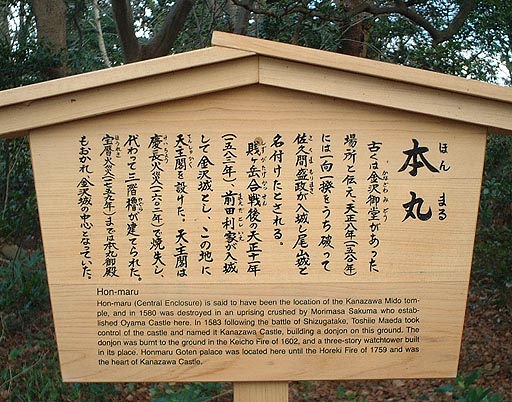 本丸
ほん まる
古くは金沢御堂があった
かなざわみどう
場所と伝え、天正八年(一五八〇年)
には一向一揆をうち破って
佐久間盛政が入城し尾山城と
さくまもりまさ
名付けたとされる。
賤ヶ岳合戦後の天正十一年
しずがたけかっせん
(一五八三年)、前田利家が入城
まえだとしいえ
して金沢城とし、この地に
天主閣を設けた。天主閣は
てんしゅかく
慶長火災(一六〇二年)で焼失し、
けいちょう
代わって三階櫓が建てられた。
やぐら
宝暦火災(一七五九年)までは本丸御殿
ほうれき
もおかれ、金沢城の中心となっていた。
Hon-maru
Hon-maru (Central Enclosure) is said to have been the location of the Kanazawa Mido tem-
ple, and in 1580 was destroyed in an uprising crushed by Morimasa Sakuma who estab-
lished Oyama Castle here. In 1583 following the battle of Shizugatake, Toshiie Maeda took
control of the castle and named it Kanazawa Castle, building a donjon on this ground. The
donjon was burnt to the ground in the Keicho Fire of 1602, and a three-story watchtower built
in its place. Honmaru Goten palace was located here until the Horeki Fire of 1759 and was
the heart of Kanazawa Castle.